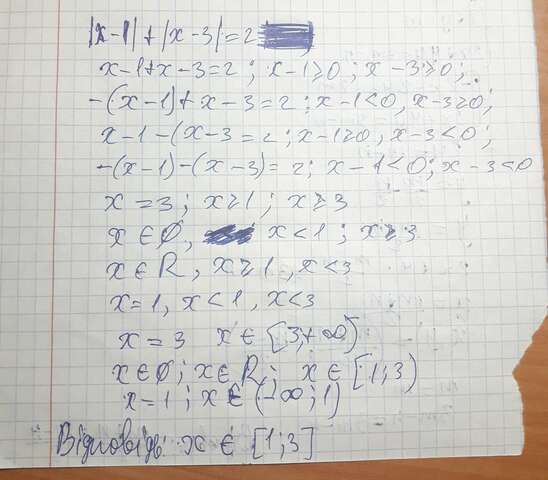 |x-1|+|x-3|=2
x-1+x-3=2; x-1≥0; x-3≥0;
-(x-1)+x-3=2; x-1<0, x-3≥0;
x-1-(x-3=2; x-1≥0, x-3<0;
-(x-1)-(x-3)=2; x-1<0; x-3<0
x=3; x≥1; x≥3
x∈∅, x<1; x≥3
x∈R, x≥1, x<3
x=1, x<1, x<3
x=3 x∈[3;+∞)
x∈∅; x∈R; x∈[1;3)
x=1; x∈(-∞;1)
Відповідь: x∈[1;3]